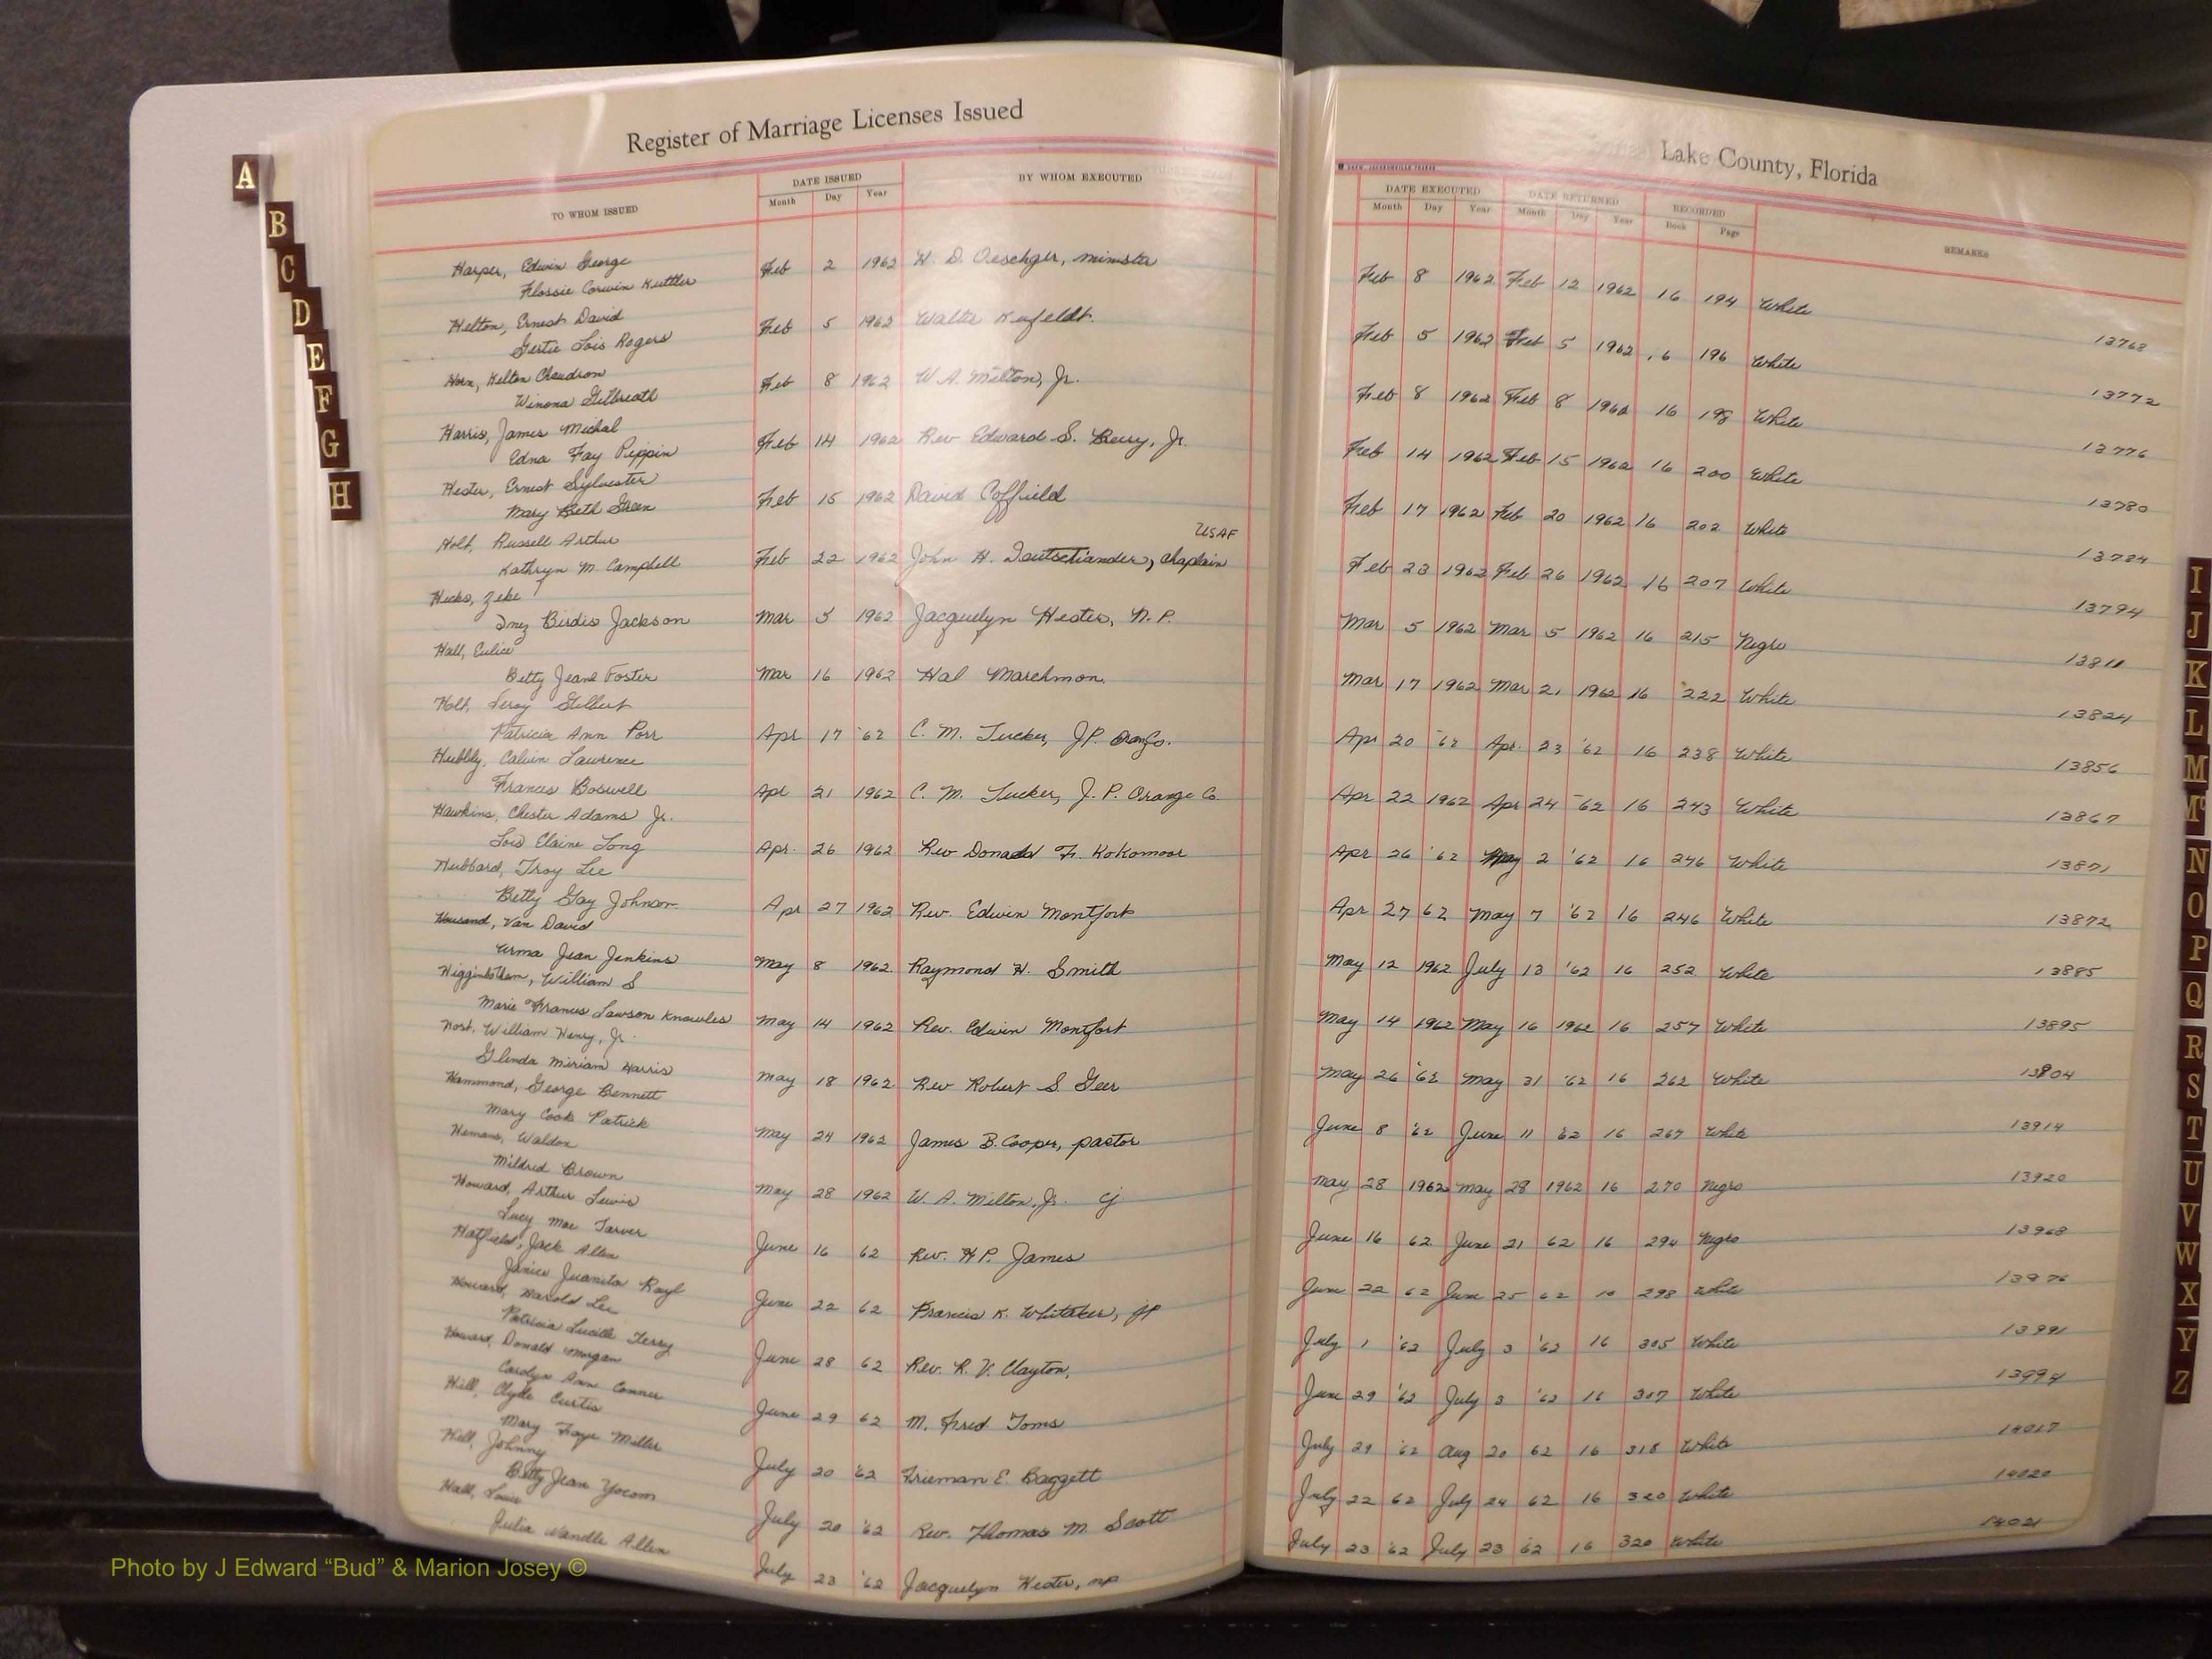 Register of Marriage Licenses Issued
TO WHOM ISSUED
DATE ISSUED
Month Day Year
BY WHOM EXECUTED
Harper, Edwin George Feb 2 1962 H. D. Oeschger, minister
Flossie Corwin Kuttler
Helton, Ernest David Feb 5 1962 Walter
Gertie Lois Rogers
Horn, Hilton Chaudron Feb 8 1962 W. A. Milton, Jr.
Winona Gilbreath
Harris, James Michal Feb 14 1962 Rev Edward S. Berry, Jr.
Edna Fay Pippin
Hester, Ernest Sylvester Feb 15 1962 David Coffield
Mary Beth Green
USAF
Holt, Russell Arthur Feb 22 1962 John H. Deutschlander, Chaplain
Kathryn M. Campbell
Hicks, Zeke Mar 5 1962 Jacquelyn Hester, N. P.
Inez Birdis Jackson
Hall, Eulice Mar 16 1962 Hal Marchman.
Betty Jeane Foster
Holt, Leroy Gilbert Apr 17 '62 C. M. Tucker, JP. Oran Co.
Patricia Ann Porr
Hubbly, Calvin Lawrence Apr 21 1962 C. M. Tucker, J. P. Orange Co.
Frances Boswell
Hawkins, Chester Adams Jr. Apr. 26 1962 Rev Donald F. Kokomoor
Lois Elaine Long
Hubbard, Troy Lee Apr 27 1962 Rev. Edwin Montfort
Betty Gay Johnson
Housand, Van David May 8 1962 Raymond H. Smith
Urma Jean Jenkins
Higginbotham, William S May 14 1962 Rev. Edwin Montfort
Marie Frances Lawson Knowles
William Henry, Jr. May 18 1962 Rev Robert S. Geer
Glenda Miriam Harris
Hammond, George Bennett May 24 1962 James B. Cooper, pastor
Mary Cook Patrick
Hemans, Waldon May 28 1962 W. A. Milton, Jr. cj
Mildred Brown
Howard, Arthur Lewis June 16 62 Rev. H P. James
Lucy Mae Tarver
Hatfield, Jack Allen June 22 62 Francis K. Whitaker, JP
Janice Juanita Rayl
Howard, Harold Lee June 28 62 Rev. R. V. Clayton,
Patricia Lucille Terry
Howard, Donald Morgan June 29 62 M. Fred Toms
Carolyn Ann Conner
Hill, Clyde Curtis July 20 '62 Frieman E Baggett
Mary Faye Miller
Hill, Johnny July 20 '62 Rev. Thomas M Scott
Betty Jean Yocom
Hall, Louie July 23 '62 Jacquelyn Hester, NP
Julia Wandle Allen
Lake County, Florida
DATE EXECUTED DATE RETURNED RECORDED
Month Day Year Month Day Year Book Page
REMARKS
Feb 8 1962 Feb 12 1962 16 194 White 13768
Feb 5 1962 Feb 5 1962 16 196 White 13772
Feb 8 1962 Feb 8 1962 16 198 White 13776
Feb 14 1962 Feb 15 1962 16 200 White 13780
Feb 17 1962 Feb 20 1962 16 202 White 13784
Feb 23 1962 Feb 26 1962 16 207 White 13794
Mar 5 1962 Mar 5 1962 16 215 Negro 13811
Mar 17 1962 Mar 21 1962 16 222 White 13824
Apr 20 '62 Apr. 23 '62 16 238 White 13856
Apr 22 1962 Apr 24 '62 16 243 White 13867
Apr 26 '62 May 2 '62 16 246 White 13871
Apr 27 62 May 7 '62 16 246 White 13872
May 12 1962 July 13 '62 16 252 White 13885
May 14 1962 May 16 1962 16 257 White 13895
May 26 '62 May 31 '62 16 262 White 13904
June 8 '62 June 11 '62 16 267 White 13914
May 28 1962 May 28 1962 16 270 Negro 13920
June 16 62 June 21 62 16 294 Negro 13968
June 22 62 June 25 62 16 298 White 13976
July 1 '62 July 3 '62 16 305 White 13991
June 29 '62 July 3 '62 16 307 White 13994
July 29 '62 Aug 20 62 16 318 White 14017
July 22 62 July 24 62 16 320 White 14020
July 23 '62 July 23 '62 16 320 White 14021
A
B
C
D
E
F
G
H
I
J
K
L
M
Mc
N
O
P
Q
R
S
T
U
V
W
X
Y
Z
Photo by J Edward “Bud” & Marion Josey ©